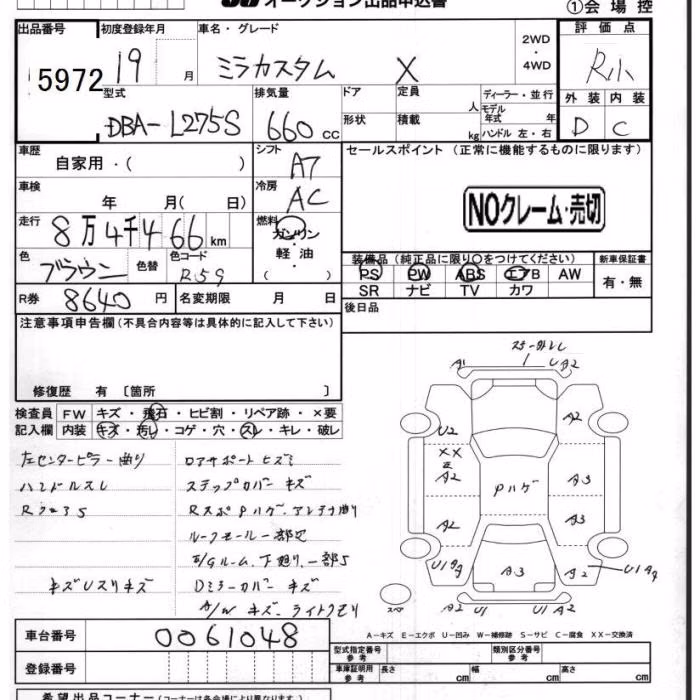 オークション出品申込書
①会場控
出品番号 初度登録年月 車名・グレード 2WD・4WD 評価点
5972 19 月 ミラカスタム X R小
型式 排気量 ドア 定員 人 ディーラー・並行 外装 内装
DBA-L275S 660 cc 形状 積載 kg モデル年式 年 ハンドル 左・右 D C
車歴 自家用・( ) シフト A7 セールスポイント (正常に機能するものに限ります)
車検 年 月( 日) 冷房 AC
NOクレーム・売切
走行 8万4千466 km 燃料 ガソリン・軽油・( )
色 ブラウン 色替 色コード R59
装備品 (純正品に限り○をつけてください) 新車保証書
PS PW ABS エアB AW 有・無
SR ナビ TV カワ
R券 8640 円 名変期限 月 日 後日品
注意事項申告欄(不具合内容等は具体的に記入して下さい)
修復歴 有 〔箇所 〕
検査員 FW キズ・飛石・ヒビ割・リペア跡・×要
記入欄 内装 キズ・汚レ・コゲ・穴・スレ・キレ・破レ
左センターピラー曲り
ハンドルスレ
キズUスリキズ
ロアサポートヒズミ
ステップカバー キズ
Rスポpハゲ、アンテナ曲り
Dミラーカバー キズ
A/W キズ
A1 U A2
U2 A2
XX
A2 A3
Pハゲ
A2 A3
U1 A3 A2 U1
A2 U1 A2
A-キズ E-エクボ U-凹み W-補修跡 S-サビ C-腐食 XX-交換済
車台番号 0061048
登録番号
型式指定番号 参考 類別区分番号 参考
車庫証明用 参考 長さ cm 幅 cm 高さ cm
希望出品コーナー(コーナーは各会場により異なります)